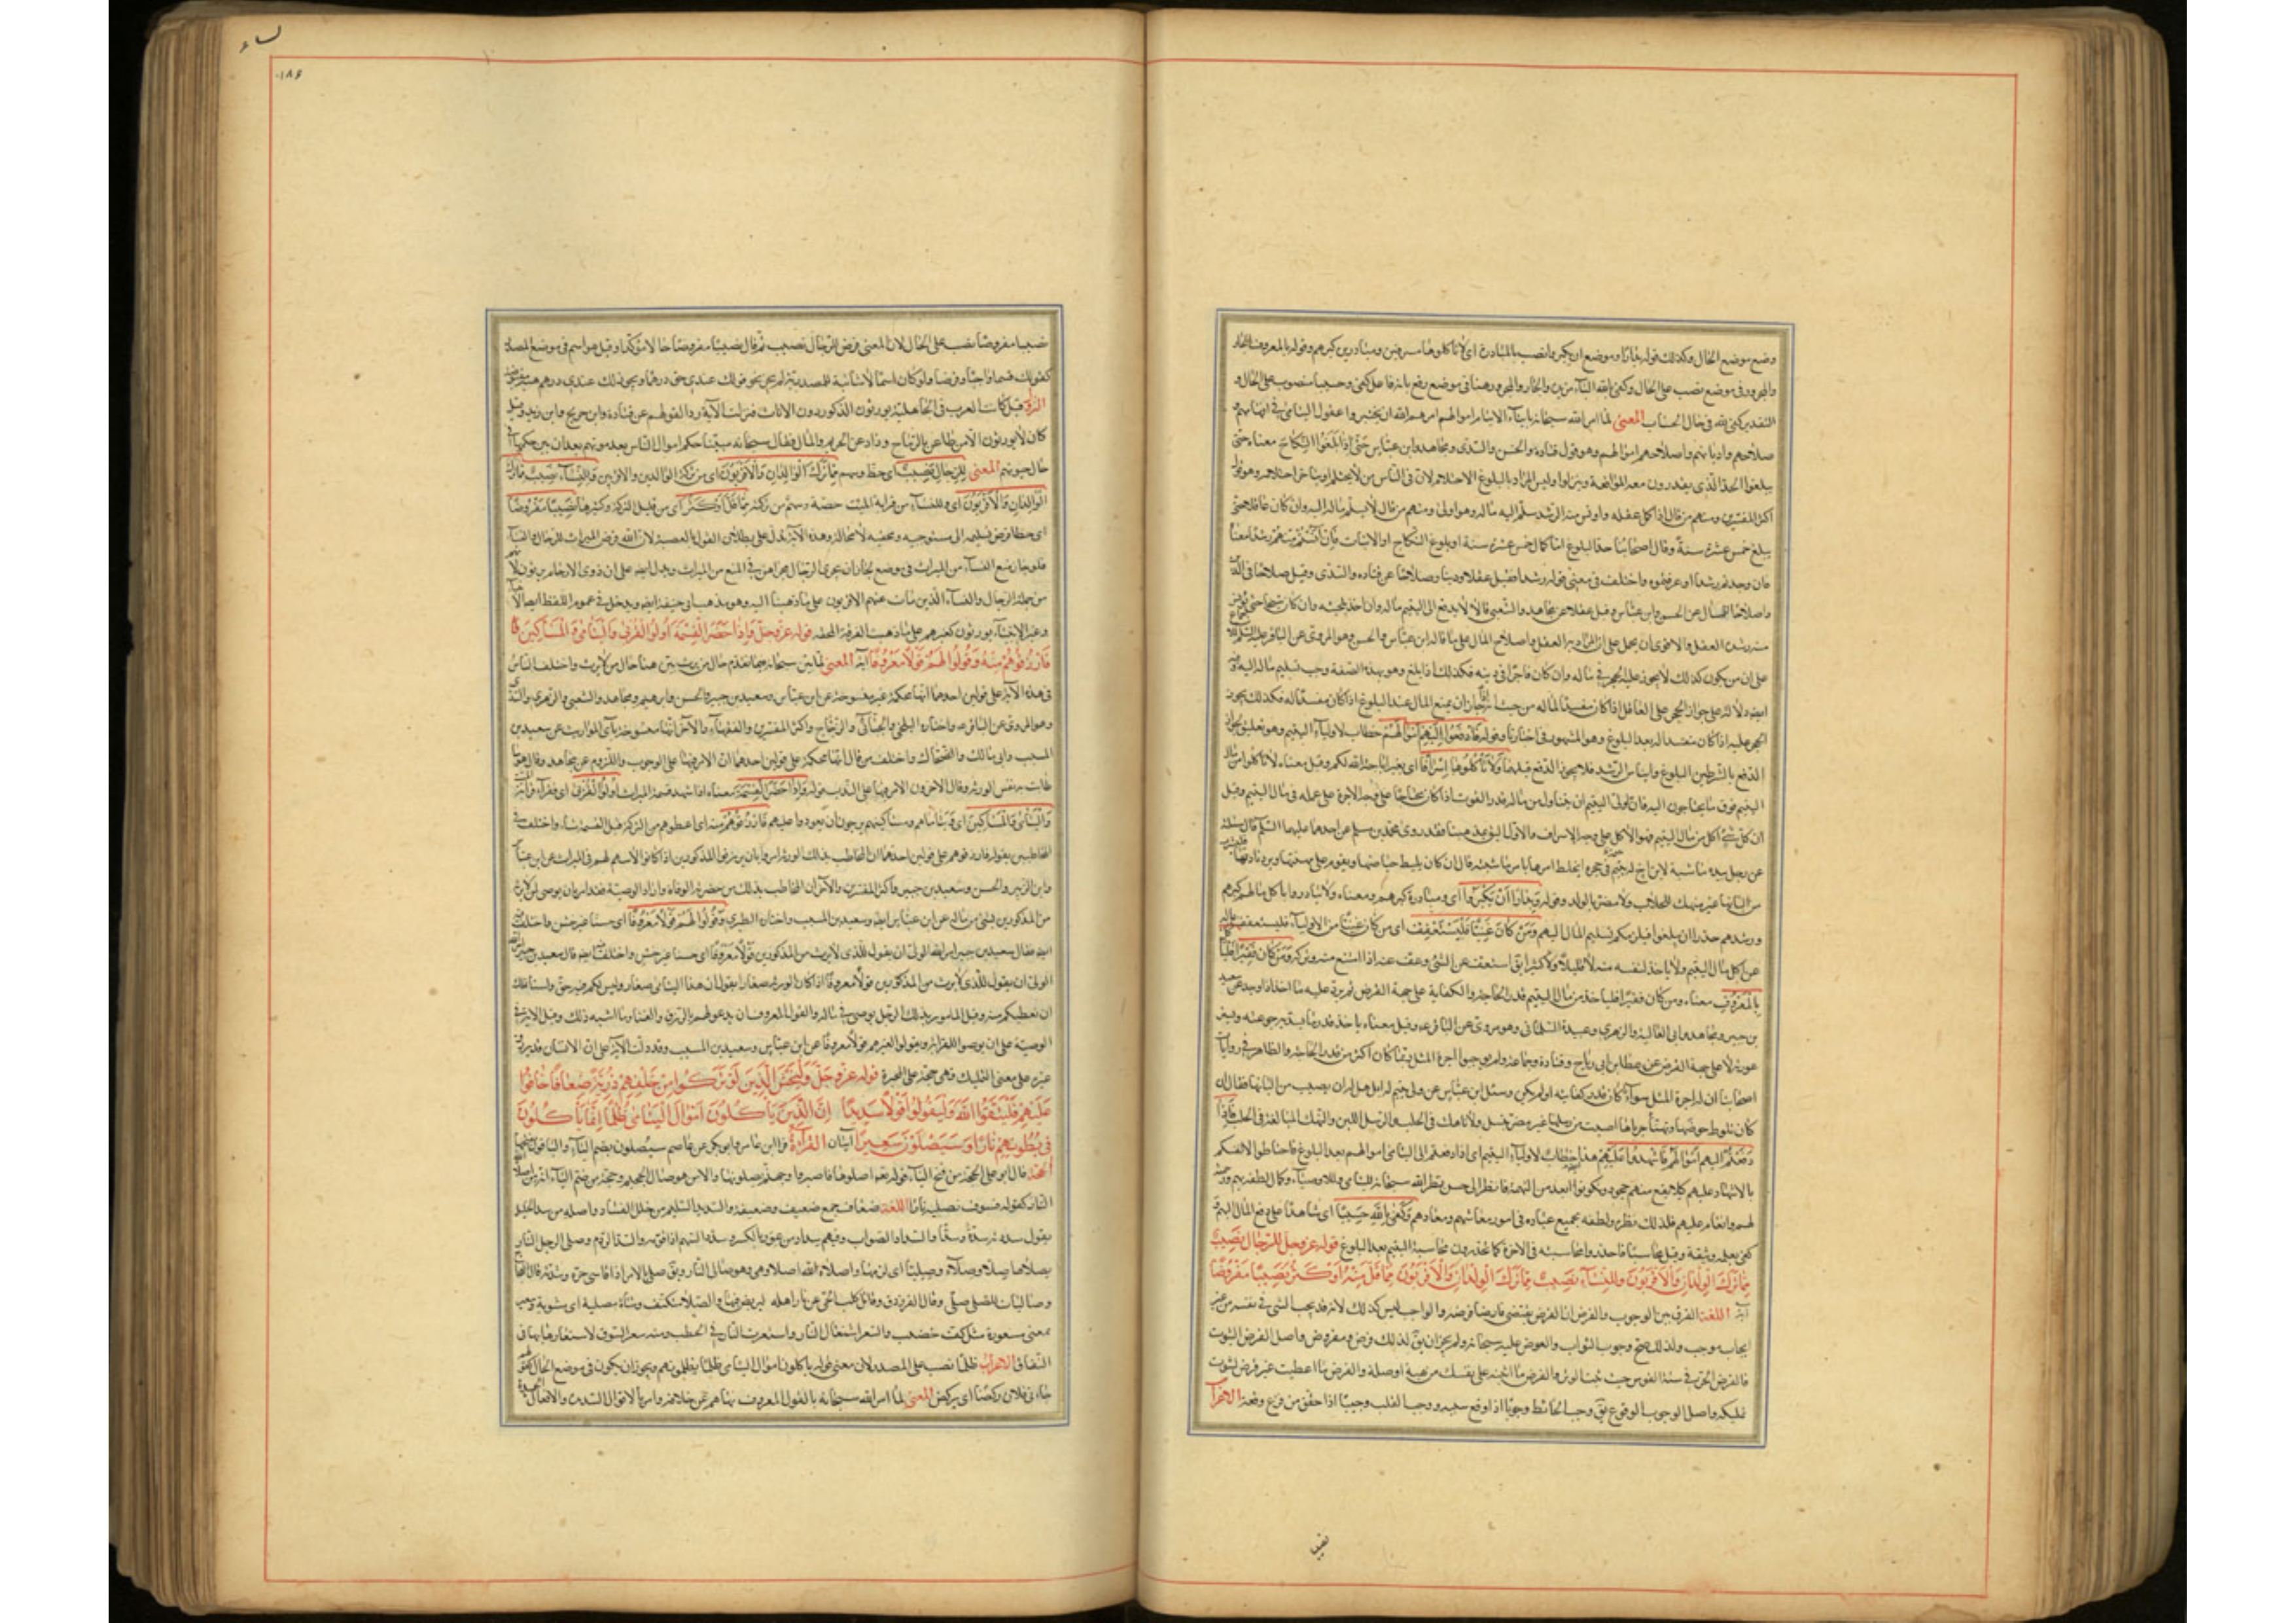 وضع موضع الحال وكذلك قوله بدارا وموضع ان يكبروا نصب بالمبادرة اى لا تأكلوها مسرفين ومبادرين كبرهم وقوله بالمعروف الجار
والمجرور فى موضع نصب على الحال وكفى بالله الباء مزيدة والجار والمجرور هنا فى موضع رفع بانه فاعل كفى وحسيبا منصوب على الحال و
التقدير كفى الله فى حال الحساب المعنى لما امر الله سبحانه بايتاء الايتام اموالهم امرهم الله ان يختبروا عقول اليتامى فى افهامهم و
صلاحهم واديانهم واصلاحهم اموالهم وهو قول قتادة والحسن والسدى ومجاهد وابن عباس حَتّى اِذا بَلَغُوا النِّكاحَ معناه حتى
يبلغوا الحد الذى يقدرون معه المواقعة وينزلوا وليس المراد بالبلوغ الاحتلام لان فى الناس من لا يحتلم او يتأخر احتلامه وهو قول
اكثر المفسرين ومنهم من قال اذا كمل عقله واونس منه الرشد سلم اليه ماله وهو اولى ومنهم من قال لا يسلم ماله اليه وان كان عاقلا حتى
يبلغ خمس عشرة سنة وقال اصحابنا حد البلوغ اما كمال خمس عشرة سنة او بلوغ النكاح او الانبات فَاِنْ آنَسْتُمْ مِنْهُمْ رُشْدًا معناه
فان وجدتم رشدا او عرفتموه واختلف فى معنى قوله رشدا فقيل عقلا ودينا وصلاحا عن قتاده والسدى وقيل صلاحا فى الدين
واصلاحا للمال عن الحسن وابن عباس وقيل عقلا عن مجاهد والشعبى قالا لا يدفع الى اليتيم ماله وان اخذ بلحيته وان كان شيخا حتى يونس
منه رشده العقل والاقوى ان يحمل على ان المراد به العقل واصلاح المال على ما قاله ابن عباس والحسن وهو المروى عن الباقر عليه السلم
على ان من يكون كذلك لا يجوز عليه الحجر فى ماله وان كان فاجرا فى دينه فكذلك اذا بلغ وهو بهذه الصفة وجب تسليم ماله اليه وفيه
ايضا دلالة على جواز الحجر على العاقل اذا كان مفسدا لماله من حيث انه اذا جاز ان يمنع المال عند البلوغ اذا كان مفسدا له فكذلك يجوز
الحجر عليه اذا كان مفسدا له بعد البلوغ وهو المشهور فى اخبارنا وقوله فَادْفَعُوا اِلَيْهِمْ اَمْوالَهُمْ خطاب لاولياء اليتيم وهو تعليق لجواز
الدفع بالشرطين البلوغ وايناس الرشد فلا يجوز الدفع قبلهما وَلا تَأْكُلُوها اِسْرافًا اى بغير ما اباحه الله لكم وقيل معناه لا تأكلوا من مال
اليتيم فوق ما يحتاجون اليه فان لولى اليتيم ان يتناول من ماله قدر القوت اذا كان محتاجا على وجه الاجرة على عمله فى مال اليتيم وقيل
ان كل شئ اكل من مال اليتيم فهو الاكل على وجه الاسراف والاول اليق بمذهبنا فقد روى محمد بن مسلم عن احدهما عليهما السلم قال سئلته
عن رجل بيده ماشية لابن اخ له يتيم فى حجره ايخلط امرها بامر ماشيته قال ان كان يليط حياضها ويقوم على مهنتها ويرد نادتها
من البانها غير منهك للحلاب ولا مضر بالولد وقوله وَبِدارًا اَنْ يَكْبَرُوا اى ومبادرة كبرهم ومعناه ولا تبادروا باكل مالهم كبرهم
ورشدهم حذرا ان يبلغوا فيلزمكم تسليم المال اليهم وَمَنْ كانَ غَنِيًّا فَلْيَسْتَعْفِفْ اى من كان غنيا من الاولياء فليستعفف بماله
عن اكل مال اليتيم ولا ياخذ لنفسه منه لا قليلا ولا كثيرا يق استعفف عن الشئ وعف عنه اذا امتنع منه وتركه وَمَنْ كانَ فَقيرًا فَلْيَأْكُلْ
بِالْمَعْرُوفِ معناه ومن كان فقيرا فلياخذ من مال اليتيم قدر الحاجة والكفاية على جهة القرض ثم يرد عليه ما اخذ اذا وجد عن سعيد
بن جبير ومجاهد وابى العالية والزهرى وعبيدة السلمانى وهو مروى عن الباقر ع وقيل معناه ياخذ قدر ما يسد به جوعته ويستر
عورته لا على جهة القرض عن عطا بن ابى رباح وقتادة وجماعة ولم يوجبوا اجرة المثل بما كان اكثر من قدر الحاجة والظاهر فى روايات
اصحابنا ان له اجرة المثل سوآء كان قدر كفايته او لم يكن وسئل ابن عباس عن ولى يتيم له ابل هل له ان يصيب من البانها فقال ان
كان تلوط حوضها وتهنأ جرباها اصبت من رسلها غير مضر بنسل ولا ناهك فى الحلب والرسل اللبن والنهك المبالغة فى الحلب فَاِذا
دَفَعْتُمْ اِلَيْهِمْ اَمْوالَهُمْ فَاَشْهِدُوا عَلَيْهِمْ هذا خطاب لاولياء اليتيم اى اذا دفعتم الى اليتامى اموالهم بعد البلوغ فاحتاطوا لانفسكم
بالاشهاد عليهم كيلا يقع منهم جحود وتكونوا ابعد من التهمة فانظر الى حسن نظر الله سبحانه لليتامى وللاوصياء وكمال لطفه بهم ورحمته
لهم وانعامه عليهم فلذلك نظره ولطفه بجميع عباده فى امور معاشهم ومعادهم وَكَفى بِاللهِ حَسيبًا اى شاهدا على دفع المال اليهم و
كفى بعلمه وثيقة وقيل محاسبا فاحذروا محاسبته فى الاخرة كما تحذرون محاسبة اليتيم بعد البلوغ قوله عز وجل لِلرِّجالِ نَصيبٌ
مِمّا تَرَكَ الْوالِدانِ وَالْاَقْرَبُونَ وَلِلنِّساءِ نَصيبٌ مِمّا تَرَكَ الْوالِدانِ وَالْاَقْرَبُونَ مِمّا قَلَّ مِنْهُ اَوْ كَثُرَ نَصيبًا مَفْرُوضًا
آية اللغة الفرق بين الوجوب والفرض ان الفرض يقتضى فارضا فرضه والواجب ليس كذلك لانه قد يجب الشئ فى نفسه من غير
ايجاب موجب ولذلك صح وجوب الثواب والعوض عليه سبحانه ولم يجز ان يق لذلك فرض ومفروض واصل الفرض الثبوت
فالفرض الحز فى سية القوس حيث يثبت الوتر والفرض ما اثبته على نفسك من هبة او صلة والفرض ما اعطيت غير قرض لثبوت
تمليكه واصل الوجوب الوقوع يق وجب الحائط وجوبا اذا وقع سمعه ووجب القلب وجيبا اذا خفق من فزع وقعة الاعراب
نصيب
نساء
١٨٦
نصيبا مفروضا نصب على الحال لان المعنى فرض للرجال نصيب ثم قال نصيبا مفروضا حالا مؤكدا وقيل هو اسم فى موضع المصدر
كقولك قسما واجبا وفرضا ولو كان اسما لا شائبة للمصدرية فيه لم يجز نحو قولك عندى حق درهما ويجوز لك عندى درهم هبة مقبوضة
النزول قيل كانت العرب فى الجاهلية يورثون الذكور دون الاناث فنزلت الآية ردا لقولهم عن قتادة وابن جريج وابن زيد وقيل
كان لا يورثون الا من طاعن بالرماح وذاد عن الحريم والمال فقال سبحانه مبينا حكم اموال الناس بعد موتهم بعد ان بين حكمها فى
حال حيوتهم المعنى لِلرِّجالِ نَصيبٌ اى حظ وسهم مِمّا تَرَكَ الْوالِدانِ وَالْاَقْرَبُونَ اى من تركة الوالدين والاقربين وَلِلنِّساءِ نَصيبٌ مِمّا تَرَكَ
الْوالِدانِ وَالْاَقْرَبُونَ اى وللنساء من قرابة الميت حصة وسهم من تركته مِمّا قَلَّ اَوْ كَثُرَ اى من قليل التركة وكثيرها نَصيبًا مَفْرُوضًا
اى حظا فرض تسليمه الى مستوجبه ومستحقيه لا محالة وهذه الآية تدل على بطلان القول بالعصبة لان الله فرض الميراث للرجال والنساء
فلو جاز منع النساء من الميراث فى موضع لجاز ان يجرى الرجال مجراهن فى المنع من الميراث ويدل ايضا على ان ذوى الارحام يرثون لانهم
من جملة الرجال والنساء الذين مات عنهم الاقربون على ما ذهبنا اليه وهو مذهب ابى حنيفة ايضا ويدخل فى عموم اللفظ ايضا الانبياء
وغير الانبياء يورثون كغيرهم على ما ذهبت الفرقة المحقة قوله عز وجل وَاِذا حَضَرَ الْقِسْمَةَ اُولُوا الْقُرْبى وَالْيَتامى وَالْمَساكينُ
فَارْزُقُوهُمْ مِنْهُ وَقُولُوا لَهُمْ قَوْلًا مَعْرُوفًا آية المعنى لما بين سبحانه فيما تقدم حال من يرث بين هنا حال من لا يرث واختلف الناس
فى هذه الآية على قولين احدهما انها محكمة غير منسوخة عن ابن عباس وسعيد بن جبير والحسن وابرهيم ومجاهد والشعبى والزهرى والسدى
وهو المروى عن الباقر ع واختاره البلخى والجبائى والزجاج واكثر المفسرين والفقهاء والآخر انها منسوخة بآى المواريث عن سعيد بن
المسيب وابى مالك والضحاك واختلف من قال انها محكمة على قولين احدهما ان الامر فيها على الوجوب واللزوم عن مجاهد وقال هو ما
طابت به نفس الورثة وقال الاخرون الامر فيها على الندب قوله وَاِذا حَضَرَ الْقِسْمَةَ معناه اذا شهد قسمة الميراث اُولُوا الْقُرْبى اى فقراء قرابة الميت
وَالْيَتامى وَالْمَساكينُ اى ويتاماهم ومساكينهم يرجون ان تعودوا عليهم فَارْزُقُوهُمْ مِنْهُ اى اعطوهم من التركة قبل القسمة شيئا واختلف فى
المخاطبين بقوله فارزقوهم على قولين احدهما ان المخاطب بذلك الورثة امروا بان يرزقوا المذكورين اذا كانوا لا سهم لهم فى الميراث عن ابن عباس
وابن الزبير والحسن وسعيد بن جبير واكثر المفسرين والآخر ان المخاطب بذلك من حضرته الوفاة واراد الوصية فقد امر بان يوصى لمن لا يرثه
من المذكورين بشئ من ماله عن ابن عباس ايضا وسعيد بن المسيب واختاره الطبرى وَقُولُوا لَهُمْ قَوْلًا مَعْرُوفًا اى حسنا غير خشن واختلف فيه
ايضا فقال سعيد بن جبير امر الله الولى ان يقول للذى لا يرث من المذكورين قولا معروفا اى حسنا غير خشن واختلف فيه ايضا قال سعيد بن جبير امر الله
الولى ان يقول للذى لا يرث من المذكورين قولا معروفا اذا كان الورثة صغارا يقول ان هذا اليتامى صغار وليس لكم فيه حق ولسنا نملك
ان نعطيكم منه وقيل المامور بذلك الرجل يوصى فى ماله والقول المعروف ان يدعو لهم بالرزق والغنا وما اشبه ذلك وقيل الآية فى
الوصية على ان يوصوا للقرابة ويقولوا لغيرهم قولا معروفا عن ابن عباس وسعيد بن المسيب وقد دلت الآية على ان الانسان قد يرزق
غيره على معنى التمليك وهى حجة على المجبرة قوله عز وجل وَلْيَخْشَ الَّذينَ لَوْ تَرَكُوا مِنْ خَلْفِهِمْ ذُرِّيَّةً ضِعافًا خافُوا
عَلَيْهِمْ فَلْيَتَّقُوا اللهَ وَلْيَقُولُوا قَوْلًا سَديدًا اِنَّ الَّذينَ يَأْكُلُونَ اَمْوالَ الْيَتامى ظُلْمًا اِنَّما يَأْكُلُونَ
فى بُطُونِهِمْ نارًا وَسَيَصْلَوْنَ سَعيرًا آيتان القراءة قرا ابن عامر وابو بكر عن عاصم سيصلون بضم الياء والباقون بفتحها
الحجة قال ابو على الحجة من فتح الياء قوله تعه اصلوها فاصبروا وجهنم يصلونها والا من هو صال الجحيم وحجة من ضم الياء انه من اصلاه
النار كقوله فسوف نصليه نارا اللغة ضعاف جمع ضعيف وضعيفة والسديد السليم من خلل الفساد واصله من سد الخلل
يقول سددته سدا والسداد الصواب وفيهم سداد من عوز بالكسر وسدد السهم اذا قومه والسد الردم وصلى الرجل النار
يصلاها صلا وصلاء وصليا اى لزمها واصلاه الله اصلاء وهو صالى النار ويق صلى الامر اذا قاسى حره وشدته قال العجاج
وصاليات للصلى صلى وقال الفرزدق وقاتل كلب الحى عن نار اهله ليربض فيها والصلا متكنف وشاة مصلية اى مشوية وسعير
بمعنى مسعورة مثل كف خضيب والسعر اشتعال النار واستعرت النار فى الحطب ومنه سعر السوق لاستعارها بها فى
النفاق الاعراب ظلما نصب على المصدر لان معنى قوله ياكلون اموال اليتامى ظلما يظلمونهم ويجوز ان يكون فى موضع الحال كقولك
جاءنى فلان ركضا اى يركض المعنى لما امر الله سبحانه بالقول المعروف نهاهم عن خلافه وامر بالاقوال السديدة والافعال الحميدة